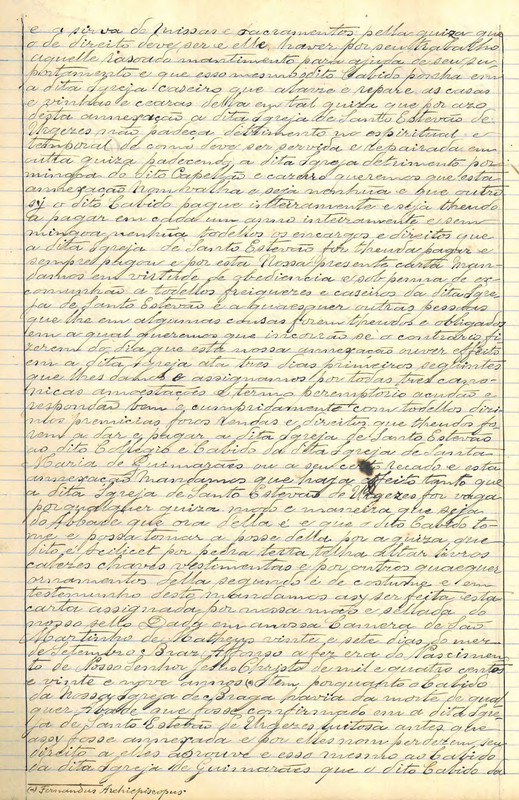 e a sirva de missas e sacramentos pella guiza que
o de direito deve ser e elle haver por seu trabalho
aquelle rasoado mantimento para ajuda de seu su
portamento e que esso mesmo o dito Cabido ponha em
a dita Igreja caseiro que abarre e repare as casas
e vinhas e ceáras della em tal guiza que por azo
desta annexação a dita Igreja de Santo Estevão de
Urgezes não padeça detrimento no espiritual e
temporal de como deve ser servida e repairada em
outra guiza padecendo a dita Igreja detrimento por
mingoa do dito Capellão e cazeiro queremos que esta
annexação nom valha e seja nenhuma e que outro
sy o dito Cabido pague inteiramente e seja theudo
a pagar em cada um anno inteiramente e sem
mingoa nenhũa todollos os encargos e direitos que
a dita Igreja de Santo Estevão for theuda pagar e
sempre pagou e por esta Nossa presente carta man
damos em virtude de obediencia e sob penna de ex
comunhão a todollos freiguezes e caseiros da dita Igre
ja de Santo Estevão e a quaesquer outras pessoas
que lhe em algumas cousas forem theudos e obligados
em a qual queremos que incorrão se o contrario fi
zerem do dia que esta nossa annexação ouver effeito
em a dita Igreja ata tres dias primeiros seguintes
que lhes damos e assignamos por todas tres cano
nicas amoestações e termo peremptorio acudão e
respondão bem e cumpridamente com todollos dizi
mos premicias foros rendas e direitos que theudos fo
rem a dar e pagar a dita Igreja de Santo Estevão
ao dito Collegio e Cabido da dita Igreja de Santa
Maria de Guimarães ou a seu certo recado e esta
annexação mandamos que haja effeito tanto que
a dita Igreja de Santo Estevão de Urgezes for vaga
por qualquer guiza modo e maneira que seja
do Abbade que ora della é e que o dito Cabido to
me e possa tomar a posse della por a guiza que
dito é scilicet por pedra terra telha altar livros
calezes chaves vestimentas e por outros quaesquer
ornamentos della segundo é de costume e em
testemunho desto mandamos asy ser feita esta
carta assignada por nossa mão e sellada do
nosso sello Dada em a nossa Camera de São
Martinho de vinte e sete dias do mez
de Setembro Braz Affonso a fez era do Nascimen
to de Nosso Senhor Jesus Christo de mil e quatro centos
e vinte e nove annos (a) Item porquanto o Cabido
da Nossa Igreja de Braga havia da morte de qual
quer Abade que fosse confirmado em a dita Igre
ja de Santo Estevão de Urgezes luitosa antes que
assy fosse annexada e por elles nom perderem seu
direito a elles aprouve e esso mesmo ao Cabido
da dita Igreja de Guimarães que o dito Cabido da
(a) Fernandus Archiepiscopus